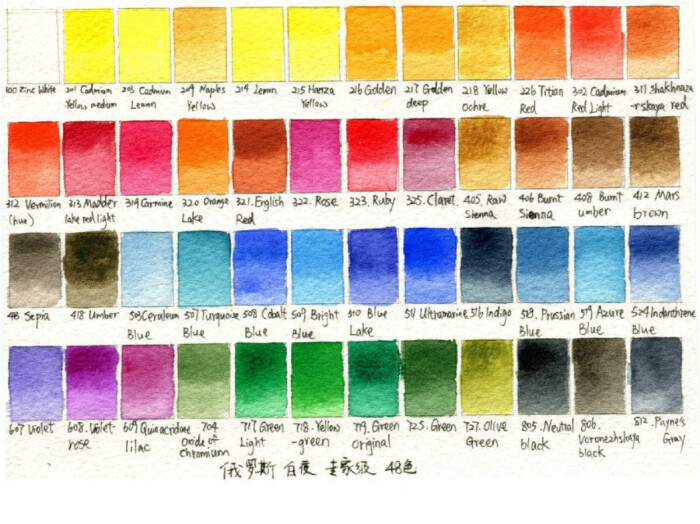 100 Zinc White 201 Cadmium 203 Cadmium 209 Naples 214 Lemon 215 Hansa 216 Golden 217 Golden 218 Yellow 226 Titian 302 Cadmium 311 Shakhnaza
Yellow medium Lemon Yellow Yellow deep ochre Red Red Light -rskaya red
312 Vermilion 313 Madder 319 Carmine 320 Orange 321. English 322. Rose 323. Ruby 325. Claret 405. Raw 406 Burnt 408 Burnt 412 Mars
(hue) lake red light Lake Red Sienna Sienna umber brown
413 Sepia 418 Umber 503 Ceruleum 507 Turquoise 508 Cobalt 509 Bright 510 Blue 511 Ultramarine 516 Indigo 518. Prussian 519 Azure 524 Indanthrene
Blue Blue Blue Blue Lake Blue Blue Blue
607 Violet 608. Violet 609 Quinacridone 704 717 Green 718. Yellow 719. Green 725. Green 727. Olive 805. Neutral 806. 812. Payne's
rose lilac Oxide of Light -green Original Green black Voronezhskaya Gray
chromium black
俄罗斯 白夜 专家级 48色